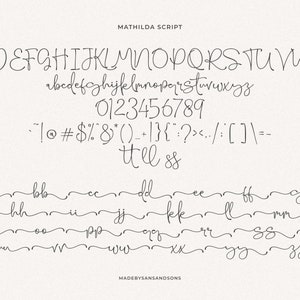 MATHILDA SCRIPT
DEFGHIJKLMNOPQRSTUV
abcdefghijklmnopqrstuvwxyz
0123456789
tt ll ss
bb cc dd ee ff
hh ii jj kk ll
oo pp qq rr ss
vv ww xx yy
MADEBYSANSANDSONS